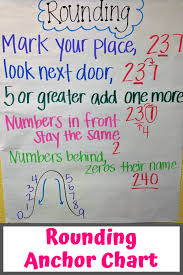 Rounding
Mark your place, 237
look next door, 237
5 or greater add one more
Numbers in front 237
stay the same
Numbers behind,
zeros their name
240
4 5
3 6
2 7
1 8
0 9
Rounding
Anchor Chart